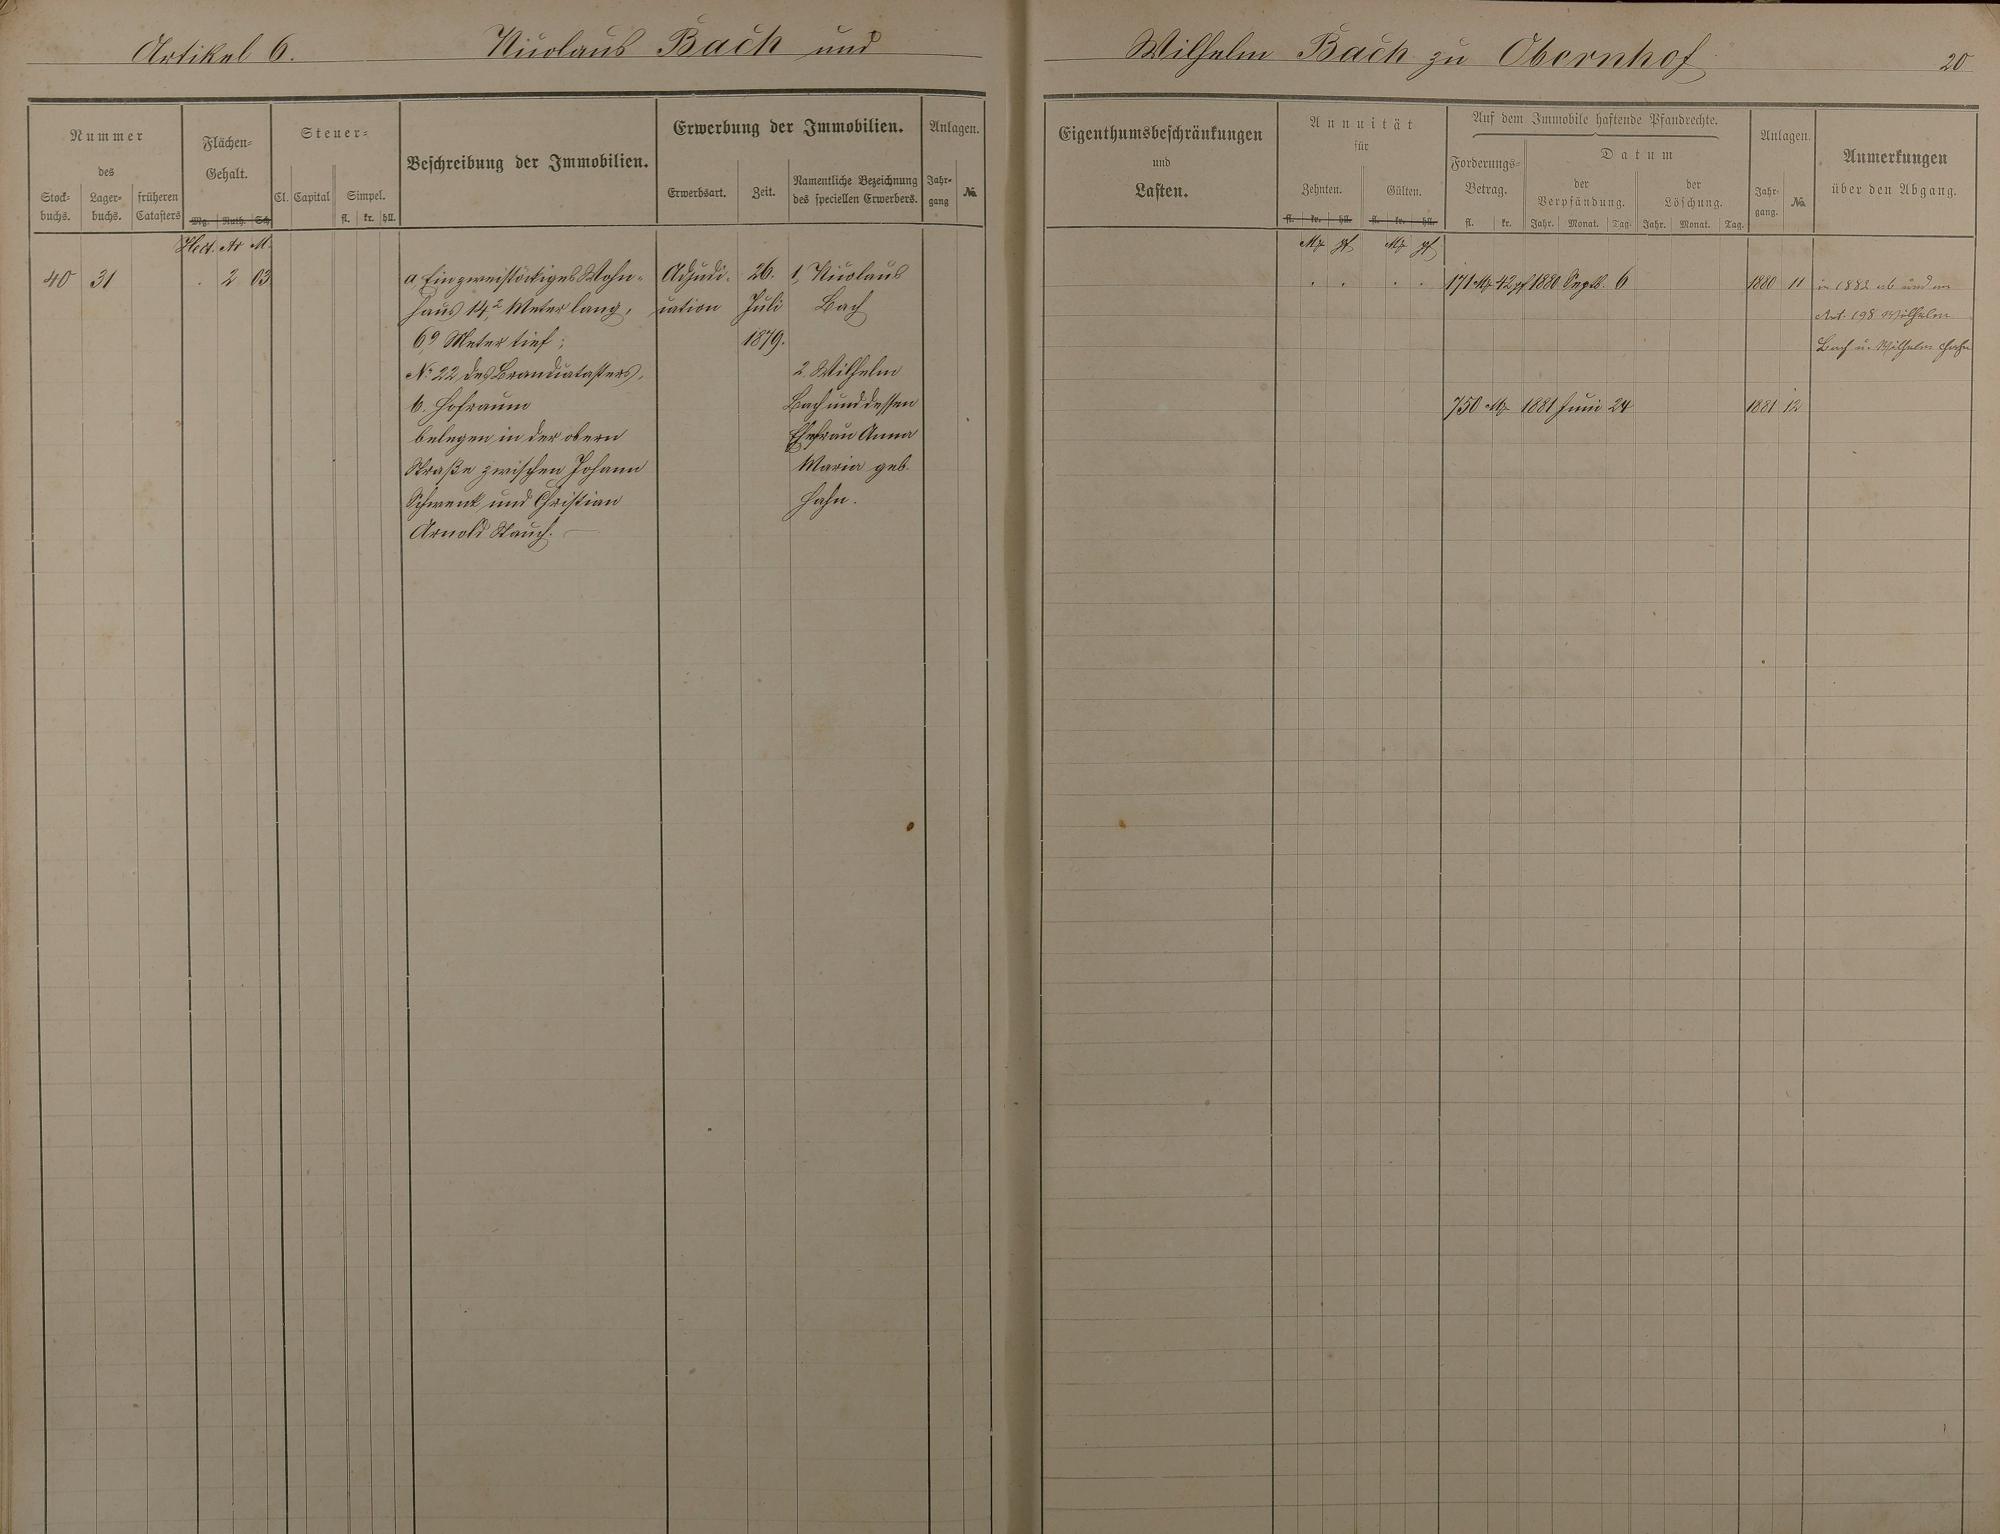 Artikel 6. Nicolaus Bach und
Wilhelm Bach zu Obernhof
20
Nummer
des
Stock-
buchs.
Lager-
buchs.
früheren
Catasters
Flächen-
Gehalt.
Mg. Ruth. Sch.
Steuer-
Cl. Capital
Simpel.
fl. kr. hll.
Beschreibung der Immobilien.
Erwerbung der Immobilien.
Erwerbsart.
Zeit.
Namentliche Bezeichnung
des speciellen Erwerbers.
Anlagen.
Jahr-
gang
No.
Hect. Ar M.
40 31 . 2 03
a Ein zweistöckiges Wohn-
haus 14,2 Meter lang,
6,9 Meter tief;
No 22 des Brandcatasters,
b. Hofraum
belegen in der obern
Straße zwischen Johann
Schwenk und Christian
Arnold Stauch.
Adjudi-
cation
26.
Juli
1879.
1, Nicolaus
Bach
2 Wilhelm
Bach und dessen
Ehefrau Anna
Maria geb.
Hahn.
Eigenthumsbeschränkungen
und
Lasten.
Annuität
für
Zehnten.
fl. kr. hll.
Gülten.
fl. kr. hll.
Auf dem Immobile haftende Pfandrechte.
Forderungs-
Betrag.
fl. kr.
Datum
der
Verpfändung.
Jahr. Monat. Tag.
der
Löschung.
Jahr. Monat. Tag.
Anlagen.
Jahr-
gang.
No.
Anmerkungen
über den Abgang.
Mk pf Mk pf
171 Mk 42 pf 1880 Septb. 6 1880 11
in 1882 ab und an
Art. 198 Wilhelm
Bach u. Wilhelm Hahn
750 Mk 1881 Juni 24 1881 12